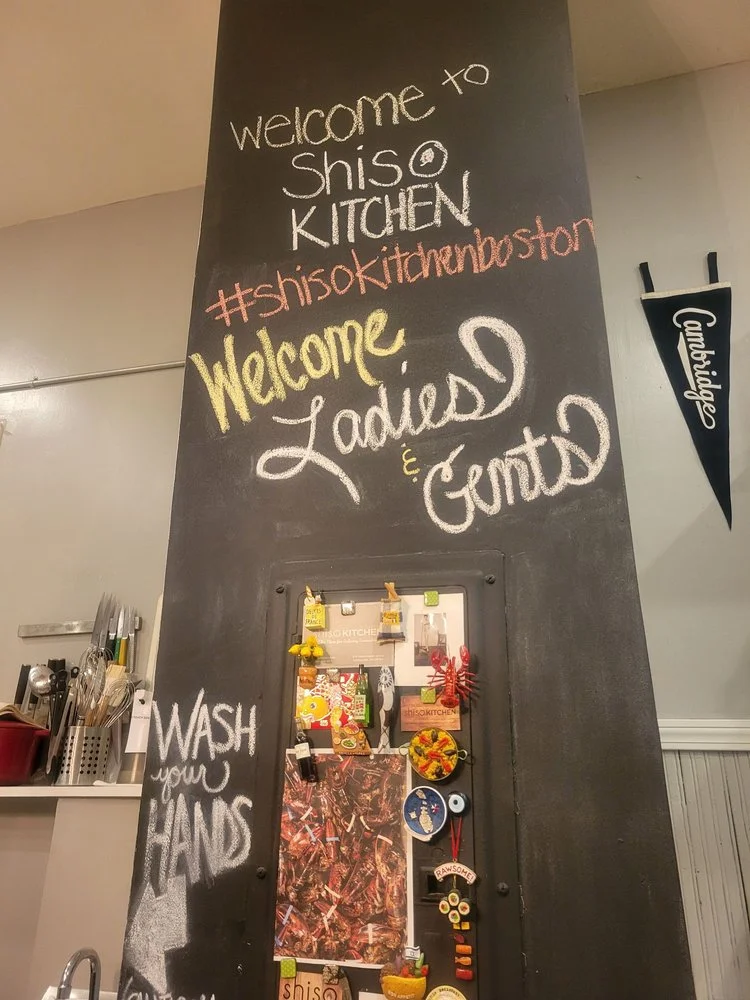 welcome to
Shiso
KITCHEN
#shisokitchenboston
Welcome
Ladies
&
Gents
Cambridge
shiso KITCHEN
shisoKITCHEN
WASH
your
HANDS
RAWSOME!
shiso